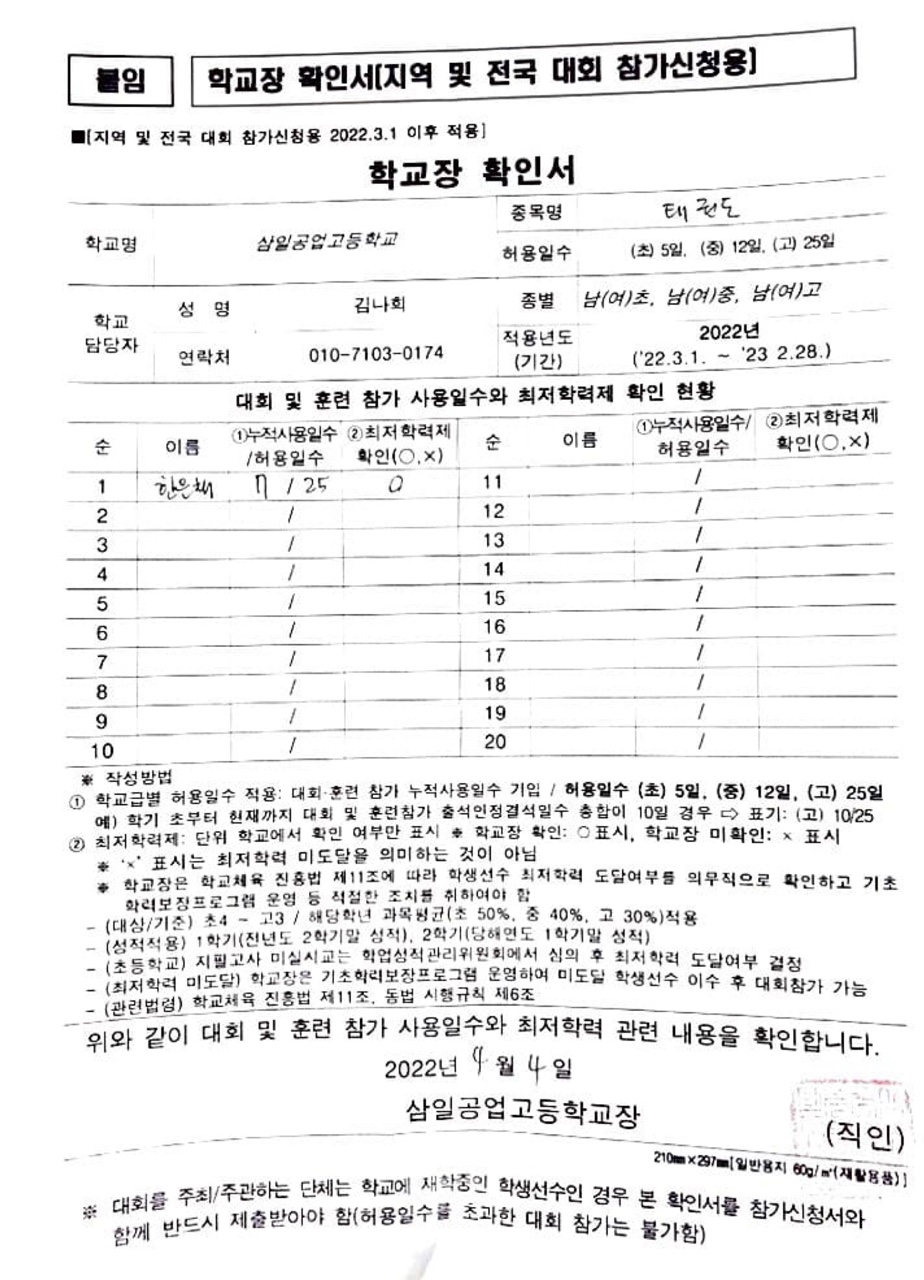 붙임
학교장 확인서[지역 및 전국 대회 참가신청용]
■[지역 및 전국 대회 참가신청용 2022.3.1 이후 적용]
학교장 확인서
학교명 삼일공업고등학교 종목명 태권도
허용일수 (초) 5일, (중) 12일, (고) 25일
학교 담당자 성 명 김나회 종별 남(여)초, 남(여)중, 남(여)고
연락처 010-7103-0174 적용년도 (기간) 2022년 ('22.3.1. ~ '23 2.28.)
대회 및 훈련 참가 사용일수와 최저학력제 확인 현황
순 이름 ①누적사용일수/허용일수 ②최저학력제 확인(○,×) 순 이름 ①누적사용일수/허용일수 ②최저학력제 확인(○,×)
1 한은채 7 / 25 O 11 /
2 / 12 /
3 / 13 /
4 / 14 /
5 / 15 /
6 / 16 /
7 / 17 /
8 / 18 /
9 / 19 /
10 / 20 /
※ 작성방법
① 학교급별 허용일수 적용: 대회·훈련 참가 누적사용일수 기입 / 허용일수 (초) 5일, (중) 12일, (고) 25일
예) 학기 초부터 현재까지 대회 및 훈련참가 출석인정결석일수 총합이 10일 경우 ⇨ 표기: (고) 10/25
② 최저학력제: 단위 학교에서 확인 여부만 표시 ※ 학교장 확인: ○표시, 학교장 미확인: × 표시
※ '×' 표시는 최저학력 미도달을 의미하는 것이 아님
※ 학교장은 학교체육 진흥법 제11조에 따라 학생선수 최저학력 도달여부를 의무적으로 확인하고 기초
학력보장프로그램 운영 등 적절한 조치를 취하여야 함
- (대상/기준) 초4 ~ 고3 / 해당학년 과목평균(초 50%, 중 40%, 고 30%)적용
- (성적적용) 1학기(전년도 2학기말 성적), 2학기(당해연도 1학기말 성적)
- (초등학교) 지필고사 미실시교는 학업성적관리위원회에서 심의 후 최저학력 도달여부 결정
- (최저학력 미도달) 학교장은 기초학력보장프로그램 운영하여 미도달 학생선수 이수 후 대회참가 가능
- (관련법령) 학교체육 진흥법 제11조, 동법 시행규칙 제6조
위와 같이 대회 및 훈련 참가 사용일수와 최저학력 관련 내용을 확인합니다.
2022년 4월 4일
삼일공업고등학교장 (직인)
210㎜×297㎜[일반용지 60g/㎡(재활용품)]
※ 대회를 주최/주관하는 단체는 학교에 재학중인 학생선수인 경우 본 확인서를 참가신청서와
함께 반드시 제출받아야 함(허용일수를 초과한 대회 참가는 불가함)